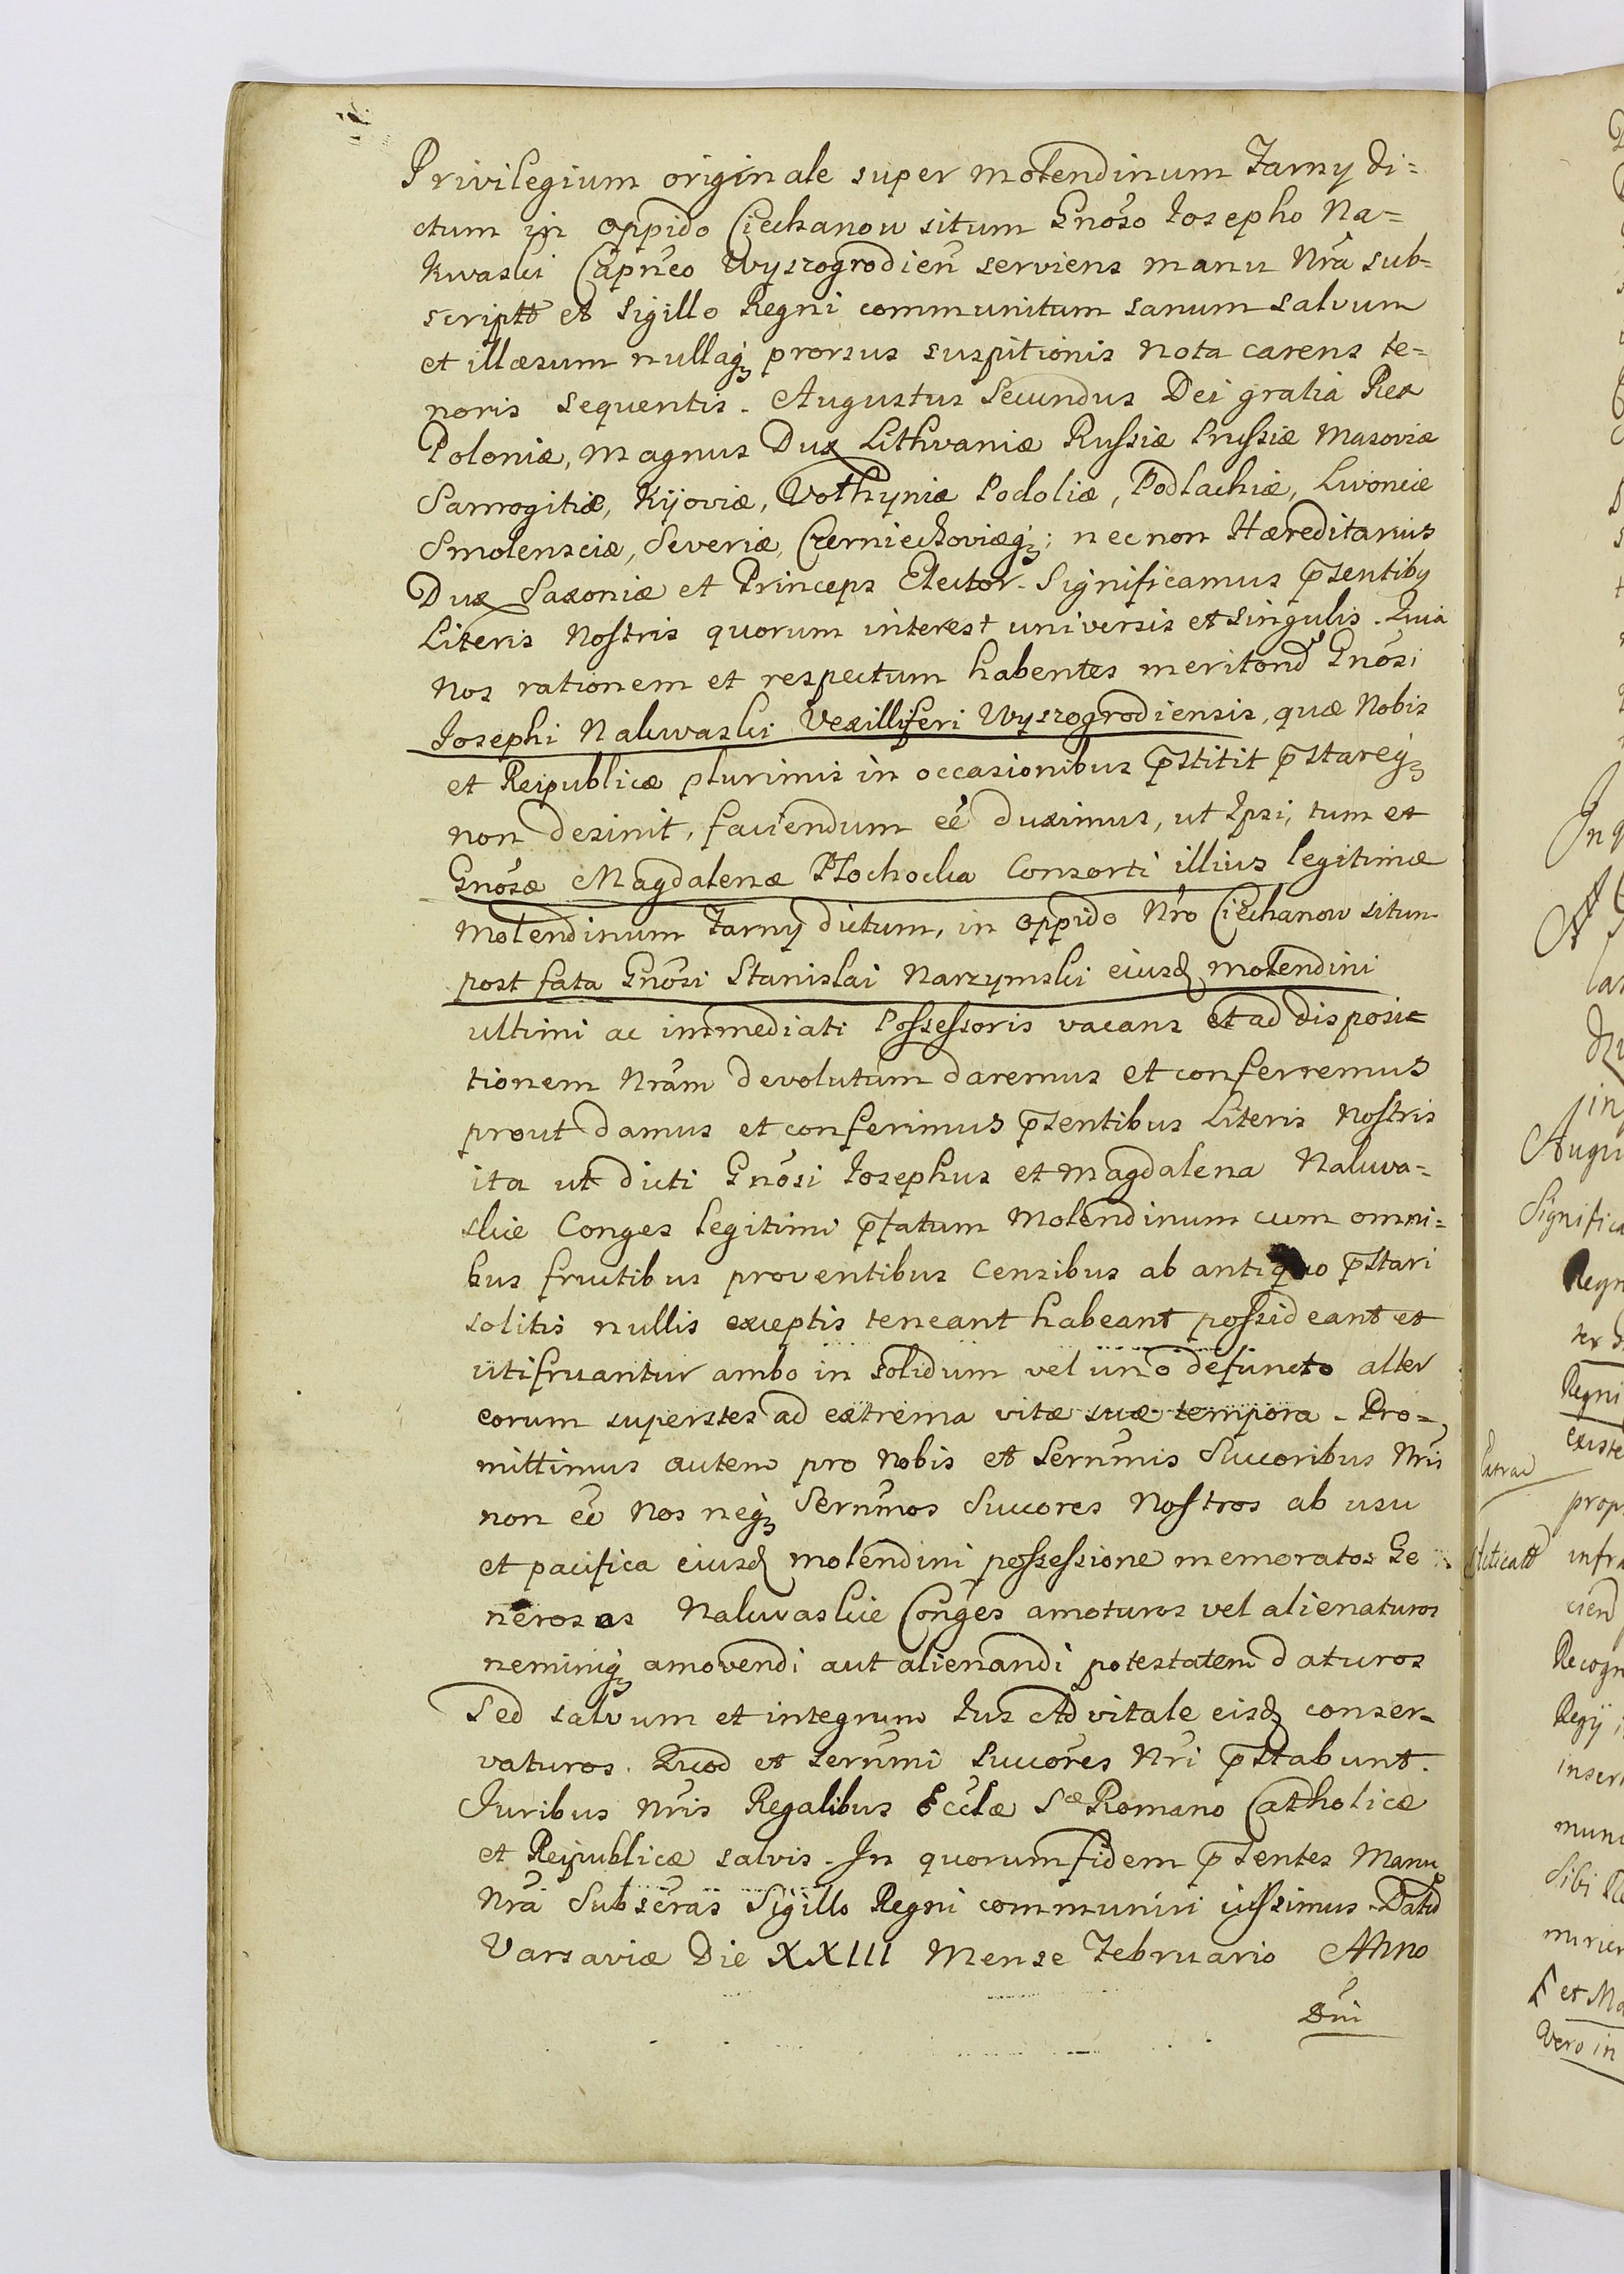 Privilegium originale super molendinum Farny di=
ctum in oppido Ciechanow situm Gnoso Josepho Na=
kwaski Capneo Wyszogrodien serviens manu Nra sub=
scriptt et Sigillo Regni communitum sanum salvum
et illæsum nullaq prorsus suspitionis nota carens te=
noris sequentis. Augustus Secundus Dei gratia Rex
Poloniæ, Magnus Dux Lithvaniæ Russiæ Prussiæ Masoviæ
Samogitiæ, Kijoviæ, Volhyniæ Podoliæ, Podlachiæ, Livoniæ
Smolensciæ, Severiæ, Czerniechoviæq; necnon Hæreditarius
Dux Saxoniæ et Princeps Elector. Significamus p̄sentibq
Literis Nostris quorum interest universis et singulis. Quia
Nos rationem et respectum habentes meritorū Gnosi
Josephi Nakwaski Vexilliferi Wyszogrodiensis, quæ Nobis
et Reipublicæ plurimis in occasionibus p̄stitit p̄stareq
non desinit, faciendum eē duximus, ut Ipsi, tum et
Gnosæ Magdalenæ Płochocka Consorti illius legitimæ
Molendinum Farny dictum, in oppido Nro Ciechanow situm
post fata Gnosi Stanislai Narzymski eiusd molendini
ultimi ac immediati Possessoris vacans et ad disposi=
tionem Nram devolutum daremus et conferremus
prout damus et conferimus p̄sentibus Literis Nostris
ita ut dicti Gnosi Josephus et Magdalena Nakwa=
skie Conges legitimi p̄fatum Molendinum cum omni=
bus fructibus proventibus Censibus ab antiquo p̄stari
solitis nullis exceptis teneant habeant possideant et
utifruantur ambo in solidum vel uno defuncto alter
eorum superstes ad extrema vitæ suæ tempora. Pro=
mittimus autem pro Nobis et Sernmis Succoribus Nris
non eē Nos neq Sernmos Succores Nostros ab usu
et pacifica eiusd molendini possessione memoratos Ge
nerosos Nakwaskie Conges amoturos vel alienaturos
neminiq amovendi aut alienandi potestatem daturos
Sed salvum et integrum Jus Advitale eisd conser=
vaturos. Quod et Sernmi Succores Nri p̄stabunt.
Juribus Nris Regalibus Ecclæ Sæ Romano Catholicæ
et Reipublicæ salvis. In quorum fidem p̄sentes Manu
Nra Subscras Sigillo Regni communiri iussimus. Datū
Varsaviæ Die XXIII Mense Februario Anno
Dni